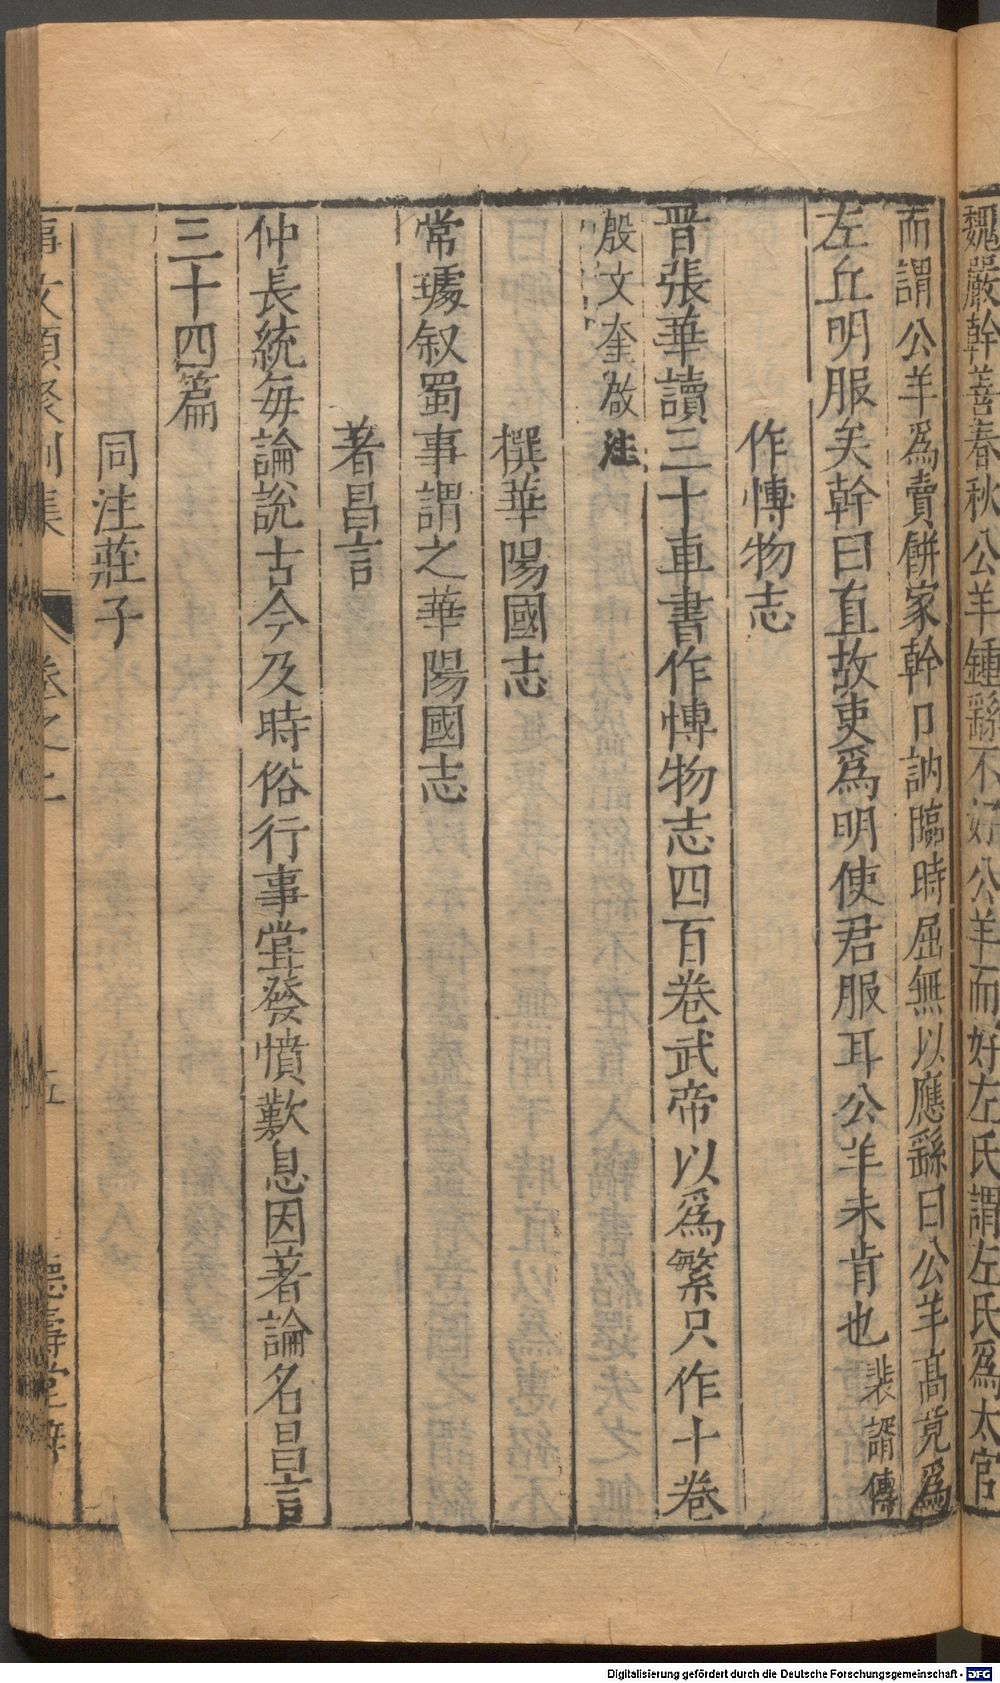 魏嚴幹善春秋公羊鍾繇不好公羊而好左氏謂左氏爲太官
而謂公羊爲賣餅家幹口訥臨時屈無以應繇曰公羊高竟爲
左丘明服矣幹曰直故吏爲明使君服耳公羊未肯也裴諝傳
作博物志
晋張華讀三十車書作博物志四百卷武帝以爲繁只作十卷
殷文奎啟注
撰華陽國志
常璩叙蜀事謂之華陽國志
著昌言
仲長統每論説古今及時俗行事嘗發憤歎息因著論名昌言
三十四篇
同注莊子
事文類聚別集
卷之二
五
德壽堂梓
Digitalisierung gefördert durch die Deutsche Forschungsgemeinschaft - DFG